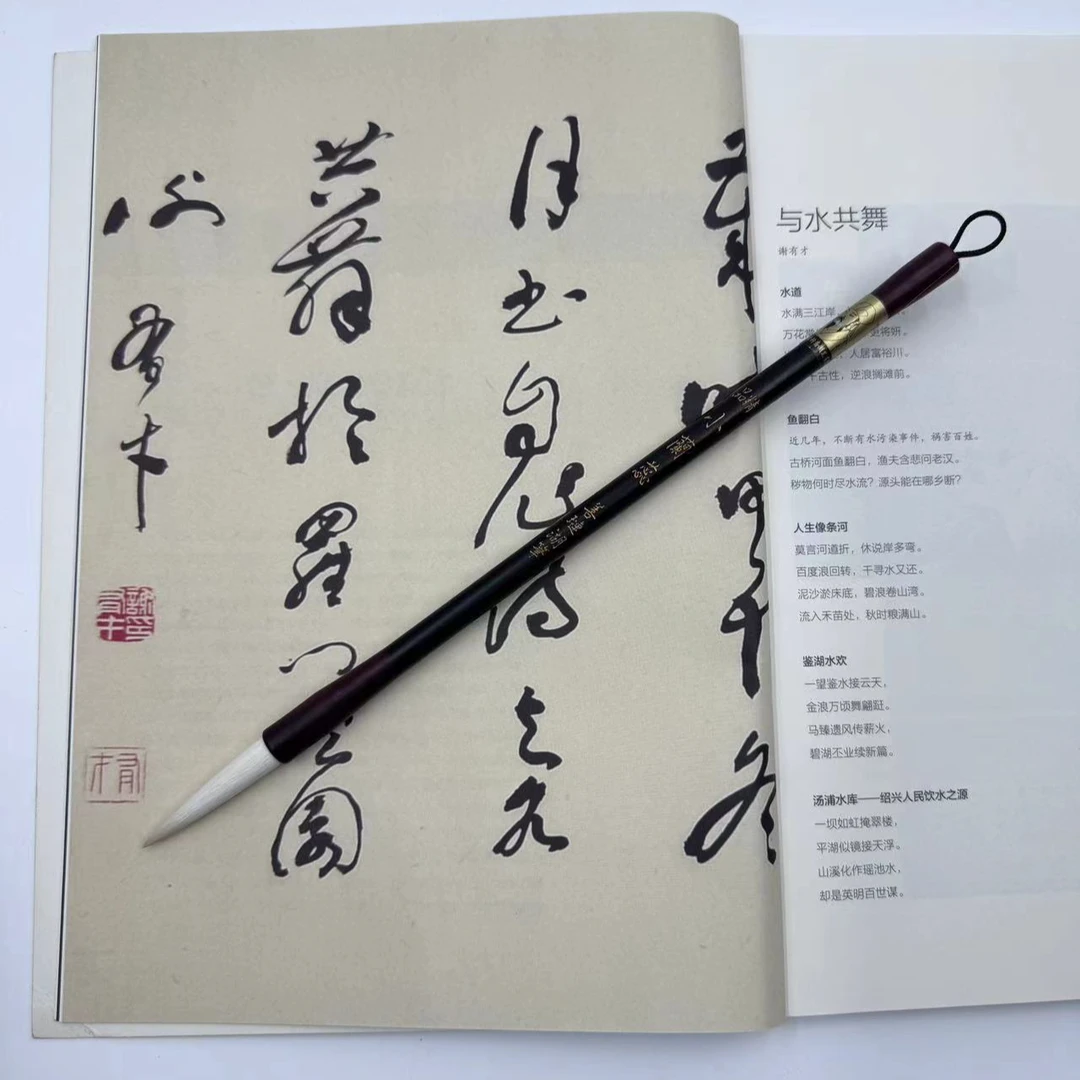 甲午冬
月书自诗之名
共舞於羅门园
谢有才
蘭蕊
善璉湖筆
与水共舞
谢有才
水道
水满三江岸，
万花 更将妍。
人居富裕川。
千古性，逆浪搁滩前。
鱼翻白
近几年，不断有水污染事件，祸害百姓。
古桥河面鱼翻白，渔夫含悲问老汉。
秽物何时尽水流？源头能在哪乡断？
人生像条河
莫言河道折，休说岸多弯。
百度浪回转，千寻水又还。
泥沙淤床底，碧浪卷山湾。
流入禾苗处，秋时粮满山。
鉴湖水欢
一望鉴水接云天，
金浪万顷舞翩跹。
马臻遗风传薪火，
碧湖丕业续新篇。
汤浦水库——绍兴人民饮水之源
一坝如虹掩翠楼，
平湖似镜接天浮。
山溪化作瑶池水，
却是英明百世谋。